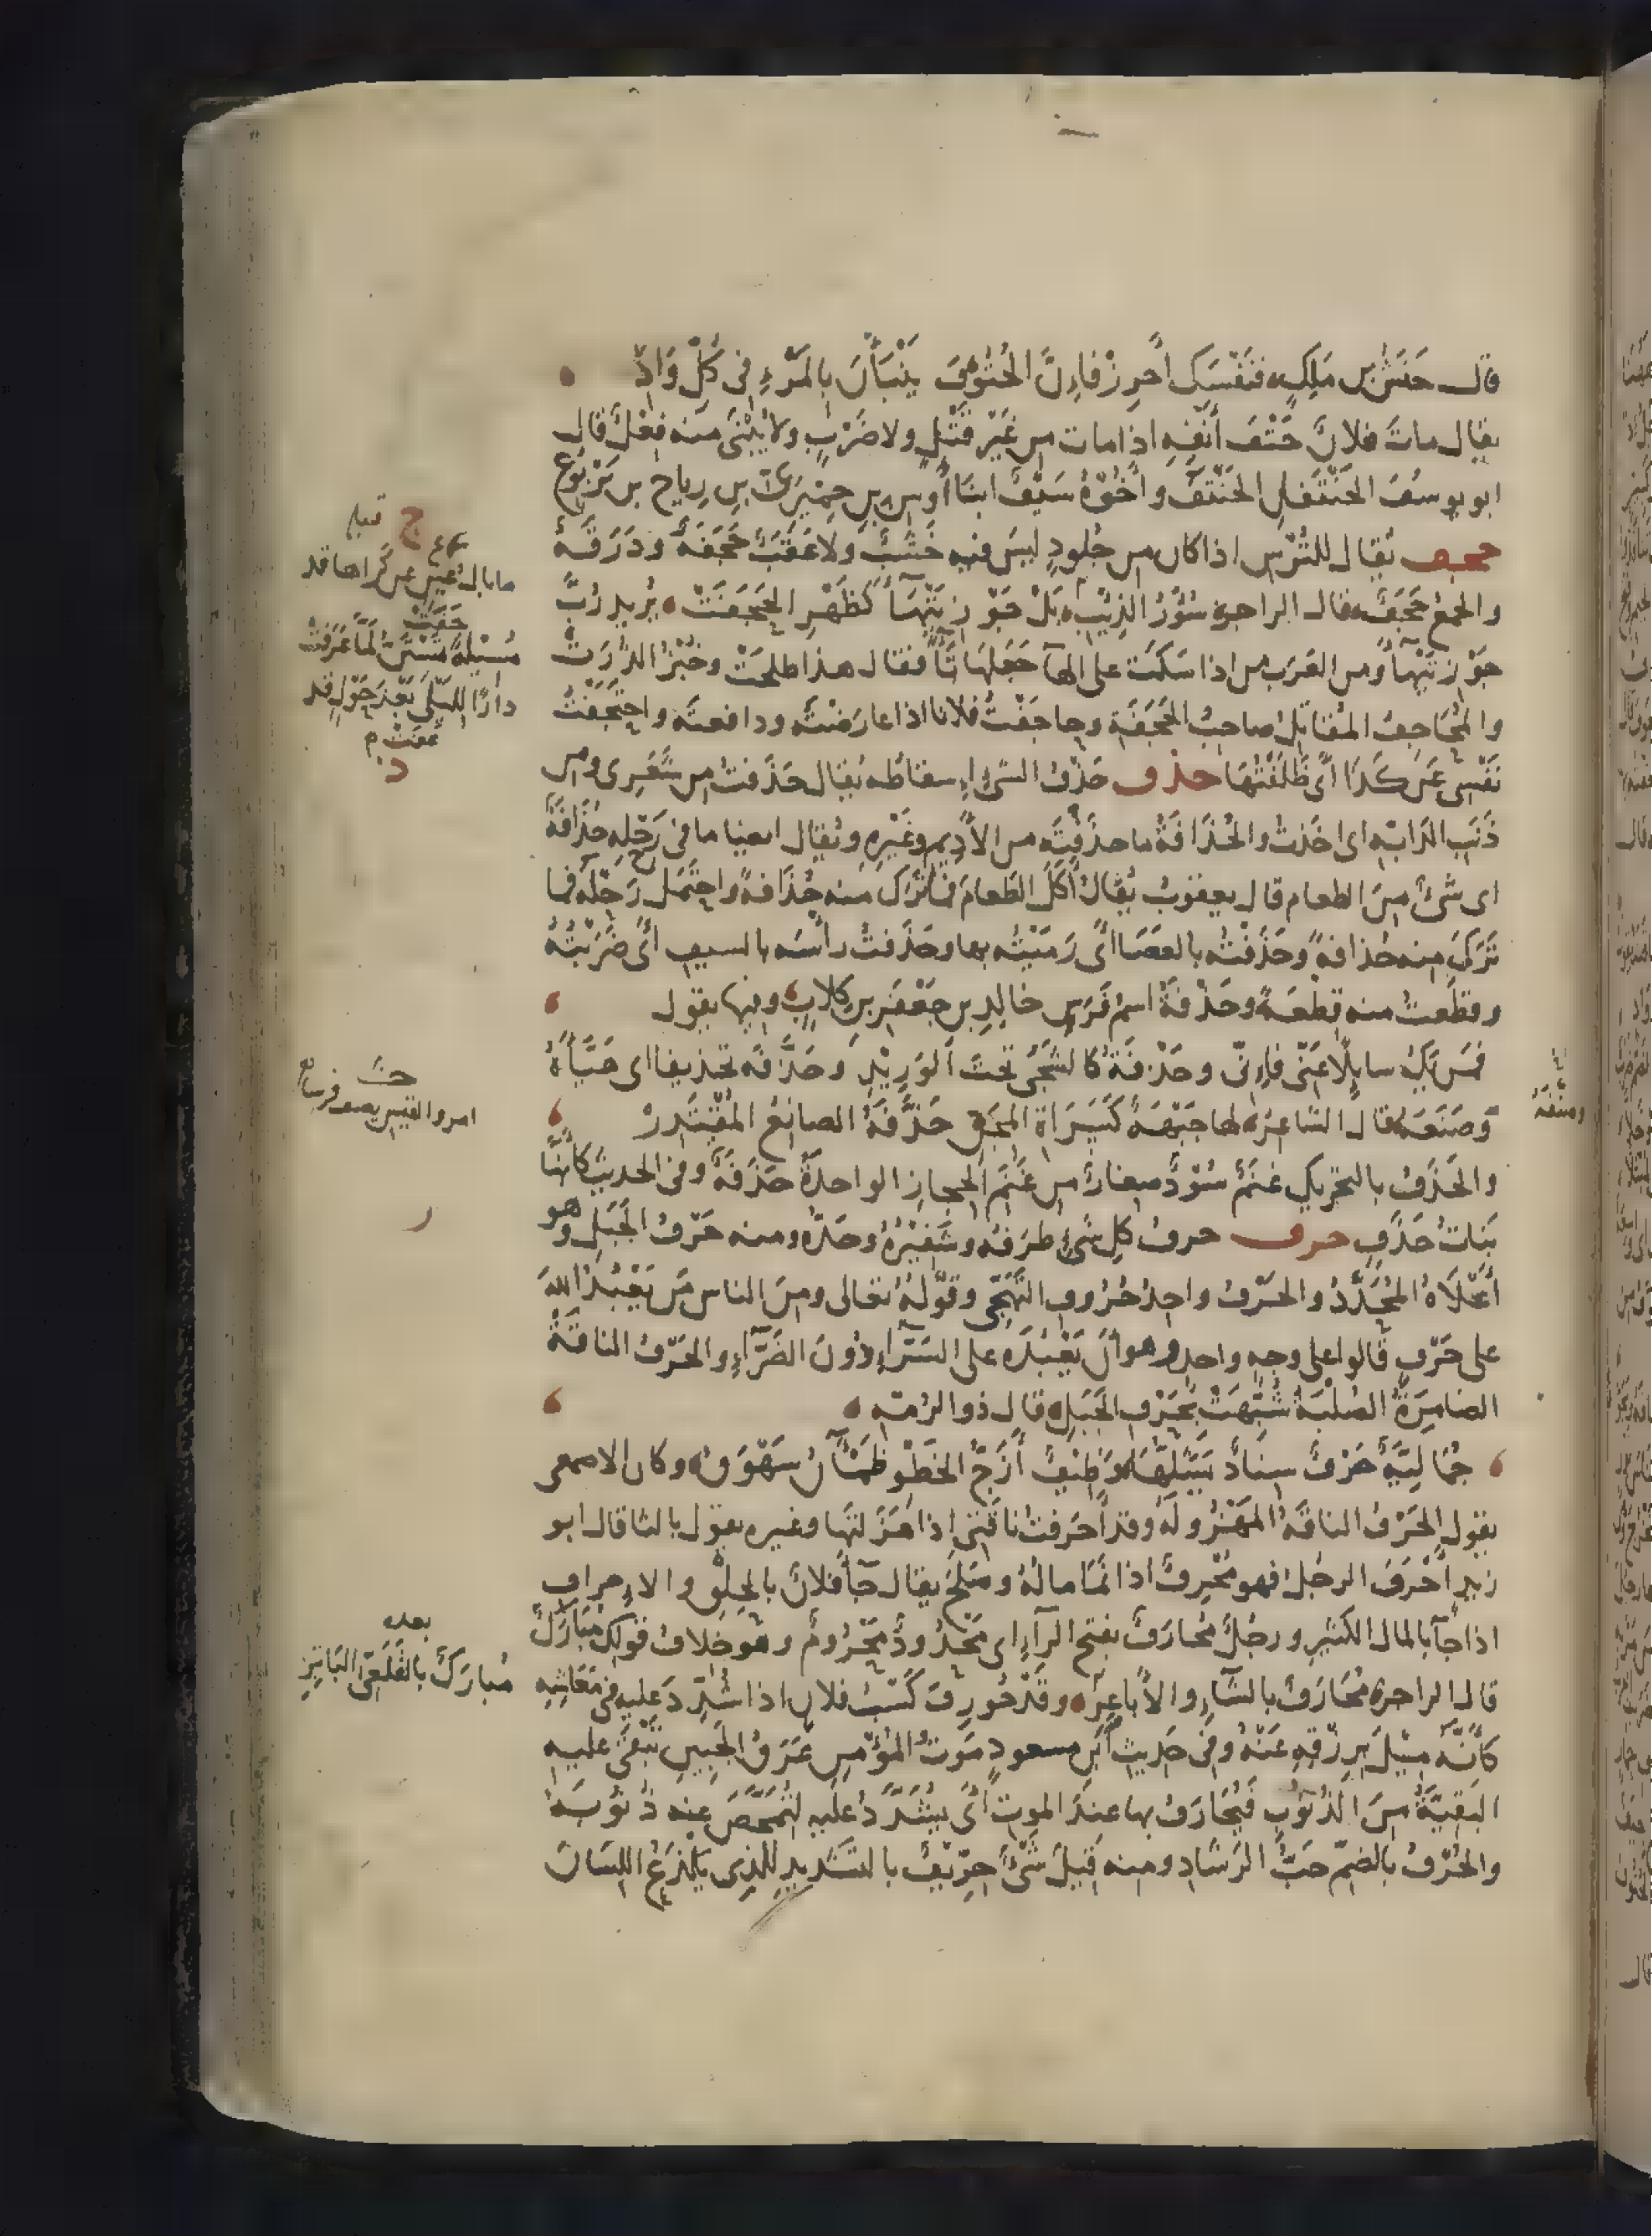 قال حَنَشُ بن مَلِكٍ فنَفْسَكَ أحرِزْ فإنَّ الحُتُوفَ يَنْبَأْنَ بالمَرْءِ في كُلِّ وَادِ
يقال ماتَ فلانٌ حَتْفَ أنْفِهِ اذا مات من غَيْرِ قَتْلٍ ولا ضَرْبٍ ولا يُبْنَى منه فِعْلٌ قال
ابو يوسُفَ الحَنْتَفانِ الحَنْتَفُ وأخُوْهُ سَيْفٌ ابنَا أوسِ بنِ حِمْيَرِيِّ بنِ رِياحِ بن يَرْبُوعٍ
حجف يُقال للتُرْسِ اذا كان من جُلودٍ ليسَ فيه خَشَبٌ ولا عَقَبٌ حَجَفَةٌ ودَرَقَةٌ
والجمعُ حَجَفٌ قال الراجز سُؤْرُ الذِيْبِ بَلْ جَوْزِ تَيْهَاءَ كَظَهْرِ الحَجَفَتْ يُرِيدُ رُبَّ
جَوْزِ تَيْهَاءَ ومن العَرَبِ من اذا سَكَتَ على الهآ جَعَلَهَا تَآءً فقال هذا طلحَتْ وخُبْزُ الذُرَتْ
والمُحَاجِفُ المُقاتِلُ صاحِبُ الحَجَفَةِ وجاحَفْتُ فلانا اذا عارَضْتَه ودافعتَه واحتَجَفْتُ
نَفْسِي عَنْ كَذَا أىْ ظَلَفْتُهَا حذف حَذْفُ الشىءِ اسقاطُه يُقال حَذَفتُ من شَعَرِى ومن
ذَنَبِ الدَابّه اى اخَذتُ والحُذَافَةُ ما حذَفْتَه من الأدِيمِ وغَيْرِهِ ويُقال ايضا ما في رَحْلِهِ حُذَافَةٌ
اى شَىْءٌ مِنَ الطعام قال يعقوبُ يُقالُ أكَلَ الطَعامَ فمَا تَرَكَ منه حُذَافةً واحتَمَلَ رَحْلَهُ فما
تَرَكَ منه حُذافةً وحَذَفْتُه بالعَصَا أىْ رَمَيْتُه بها وحَذَفتُ رأسَه بالسيف أىْ ضَرَبْتُهُ
وقطَعتُ منه قِطْعَةً وحَذْفَةُ اسمُ فَرَسِ خالِدِ بنِ جَعْفَرِ بنِ كِلابٍ وفيها يقول
فمَن يَكُ سايِلًا عَنّى فإنّى وحَذْفَةَ كالشَجَى تحتَ الوَرِيْدِ وحَذَّفَه تحذيفا اى هَيَّأهُ
وصَنَعَه قال الشاعرُ لها جَبْهَةٌ كَسَرَاةِ المِجَنِّ حَذَّفَهُ الصانِعُ المُقْتَدِرْ
والحَذَفُ بالتحريكِ غَنَمٌ سُوْدٌ صِغارٌ من غَنَمِ الحِجازِ الواحدةُ حَذَفَةٌ وفي الحديثِ كأنَّها
بَنَاتُ حَذَفٍ حرف حرفُ كلِ شىءٍ طرَفُه وشَفِيْرُهُ وحَدُّه ومنه حَرْفُ الجَبَلِ وهو
أعْلَاهُ المُحَدَّدُ والحَرْفُ واحِدُ حُرُوفِ التَهَجّى وقَوْلُهُ تعالى ومِنَ الناس مَن يَعْبُدُ اللهَ
على حَرْفٍ قالوا على وجهٍ واحدٍ وهو أنْ يَعْبُدَهُ على السَرَّاءِ دُوْنَ الضَرَّآءِ والحَرْفُ الناقَةُ
الضامِرَةُ الصُلْبَةُ شُبِّهَتْ بحَرْفِ الجَبَلِ قال ذو الرُمّه
جُمَالِيَّةٌ حَرْفٌ سِنَادٌ يَشُلُّهَا وَظِيْفٌ أزَجُّ الخَطْوِ ظَمْآنُ سَهْوَقُ وكان الاصمعى
يقول الحَرْفُ الناقةُ المَهْزُولَةُ وقد أحرَفتُ ناقَتى اذا هَزَلتَها وغيره يقول بالثا قال ابو
زيد أحْرَفَ الرجُلُ فهو مُحْرِفٌ اذا نَمَا مالُهُ وصَلَحَ يقال جَآءَ فلانٌ بالحِلْقِ والاِحرافِ
اذا جآ بالمال الكثيرِ ورجُلٌ مُحارَفٌ بفتح الرآءِ اى مَحْدُودٌ مَحْرُومٌ وهو خلافُ قولِكَ مُبَارَكٌ
قال الراجز مُحَارَفٌ بالشآءِ والأباعِرِ وقَدْ حُورِفَ كَسْبُ فلانٍ اذا شُدِّدَ عليهِ في مَعَاشِهِ
كأنَّه مِيْلَ بِرِزْقِهِ عَنْهُ وفى حَدِيثِ ابنِ مسعودٍ مَوتُ المُؤْمِنِ عَرَقُ الجَبِينِ تَبْقَى عليه
البَقِيَّةُ مِنَ الذُنُوبِ فيُحَارَفُ بها عِندَ الموتِ أىْ يُشَدَّدُ عليه لِتُمَحَّصَ عنه ذُنُوبُهُ
والحُرْفُ بالضَمّ حَبُّ الرَشَادِ ومنه قِيلَ شَىْءٌ حِرِّيْفٌ بالتَشْدِيدِ للذى يَلْذَعُ اللِسَانَ
ج قبله
ما بالُ عَيْنٍ عن كَراها قد
جَفَتْ
مُسْبِلَةً تَسْتَنُّ لَمَّا عَرَفَتْ
دارًا لِلَيْلَى بَعْدَ حَوْلٍ قد
عَفَتْ
امرو القيس يصف فرسا
بعده
مُبارَكٌ بالقَلَعِىِّ البَاتِرِ